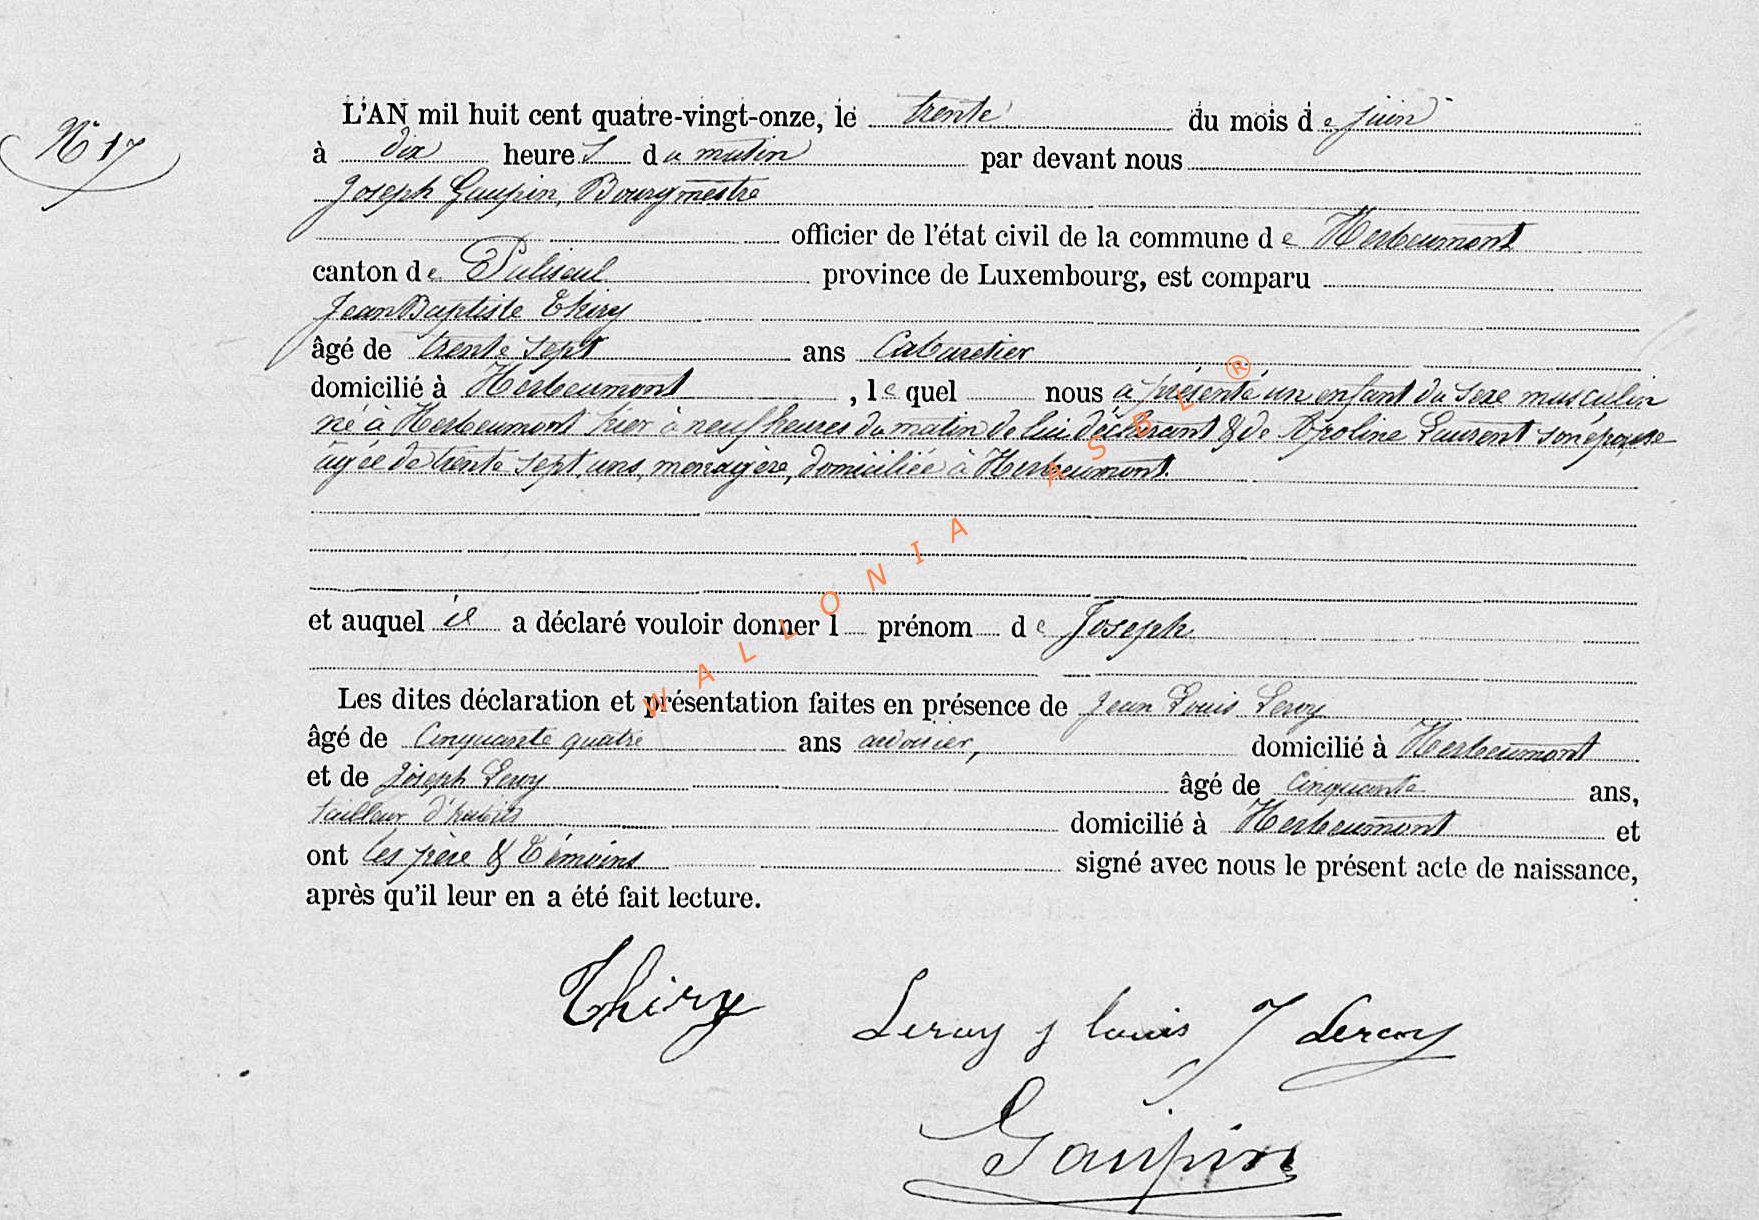 N° 17
L'AN mil huit cent quatre-vingt-onze, le trente du mois de juin
à dix heures du matin par devant nous
Joseph Gaupin, Bourgmestre
officier de l'état civil de la commune de Herbeumont
canton de Paliseul province de Luxembourg, est comparu
Jean Baptiste Thiry
âgé de trente sept ans Cabaretier
domicilié à Herbeumont, lequel nous a présenté un enfant du sexe masculin
né à Herbeumont hier à neuf heures du matin de lui déclarant & de Apoline Laurent son épouse
âgée de trente sept ans, ménagère, domiciliée à Herbeumont.
et auquel il a déclaré vouloir donner l prénom de Joseph
Les dites déclaration et présentation faites en présence de Jean Louis Leroy
âgé de Cinquante quatre ans ardoisier, domicilié à Herbeumont
et de Joseph Leroy âgé de cinquante ans,
tailleur d'habits domicilié à Herbeumont et
ont les père & témoins signé avec nous le présent acte de naissance,
après qu'il leur en a été fait lecture.
Thiry
Leroy j louis J Leroy
Gaupin
WALLONIA ASBL ®